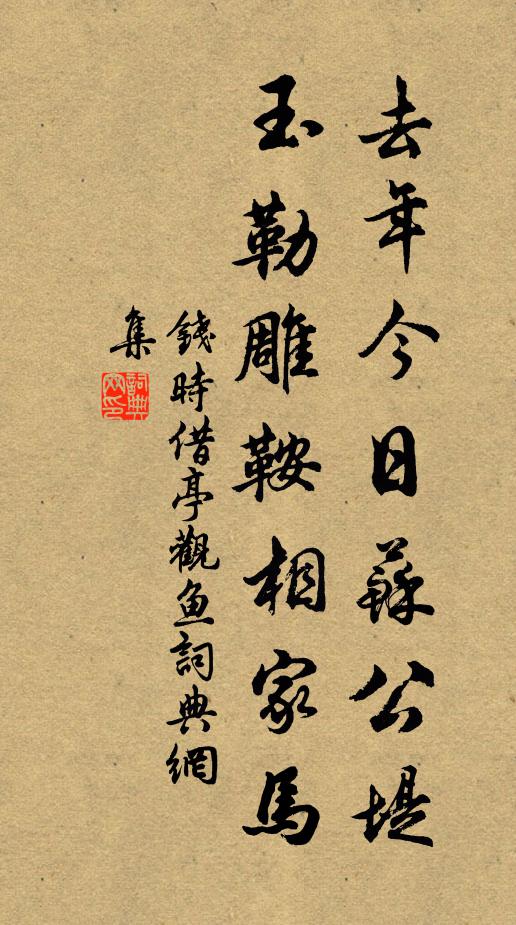 去年今日蘇公堤
玉勒雕鞍相家馬
錢時借亭觀魚詞典網
集
詞典網印